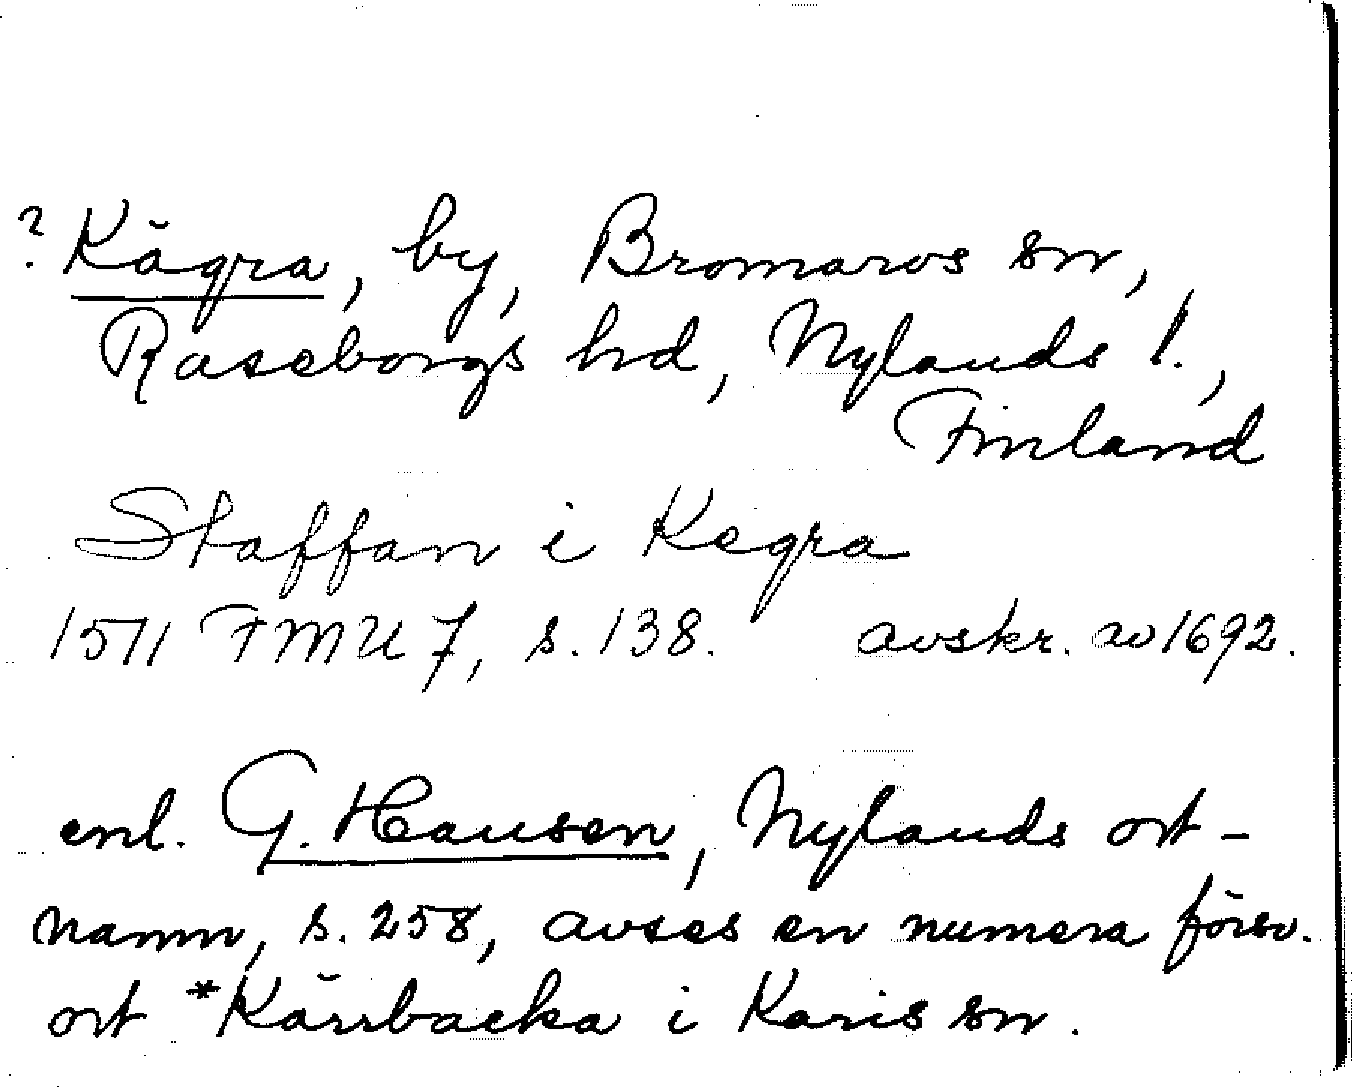 ? Kägra, by, Bromarvs sn,
Raseborgs hd, Nylands l.,
Finland
Staffan i Kegra
1571 FMU 7, s. 138. avskr. av 1692.
enl. G. Hausen, Nylands ort-
namn, s. 258, avses en numera försv.
ort *Kärrbacka i Karis sn.